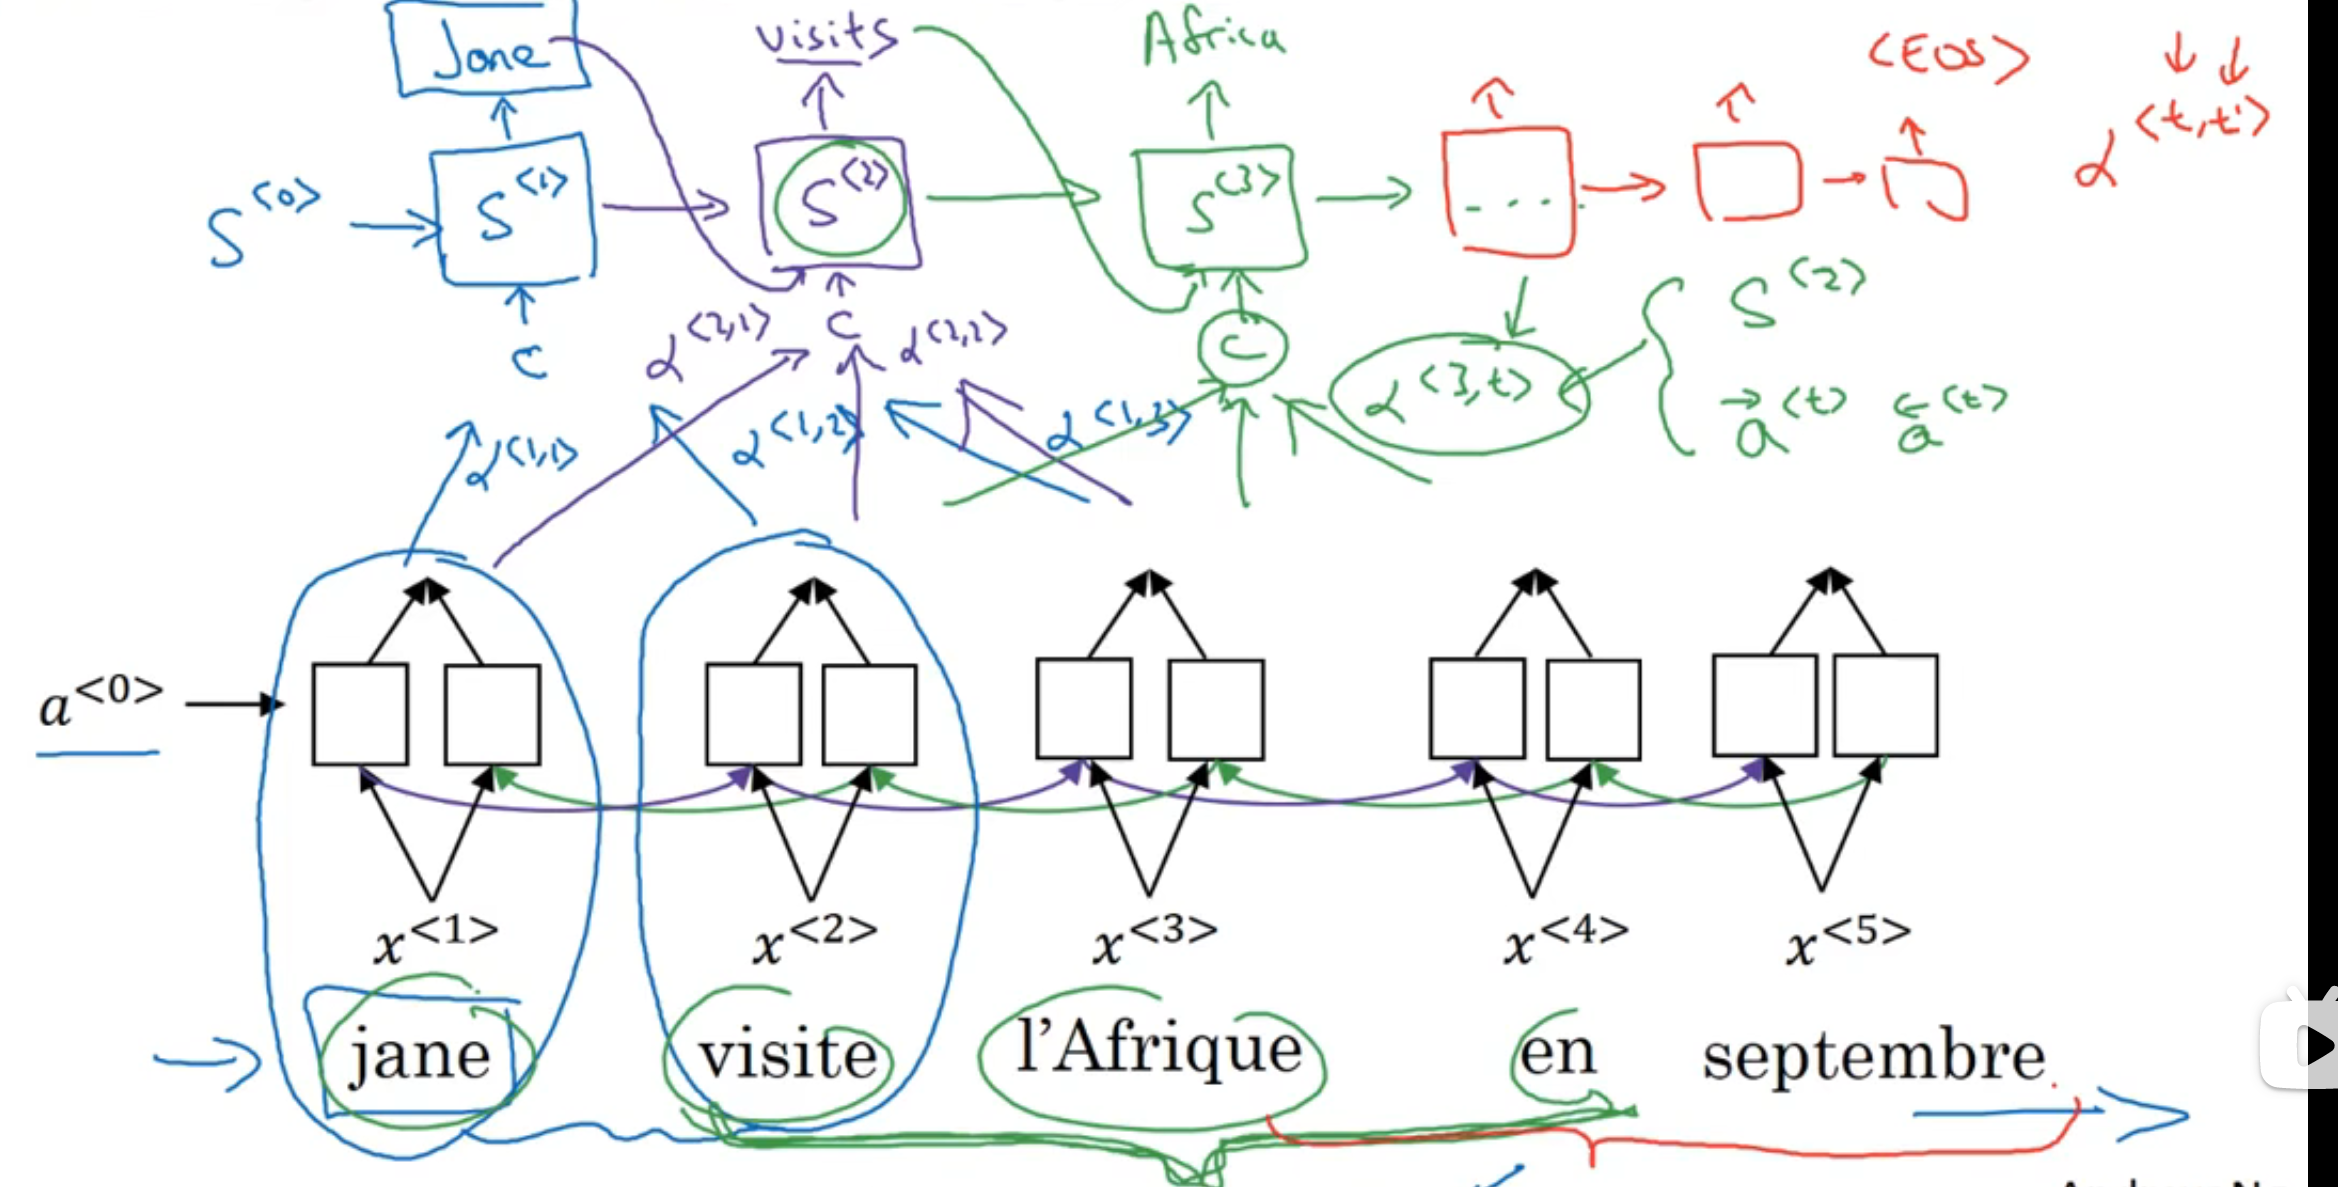 Jane visits Africa <EOS> ↓ ↓
S<0> → S<1> → S<2> → S<3> → .... → → α<t,t'>
C α<2,1> C α<2,2> C α<3,t> S<2>
α<1,1> α<1,2> α<1,3> a<t> a<t>
a<0>
x<1> x<2> x<3> x<4> x<5>
jane visite l'Afrique en septembre.